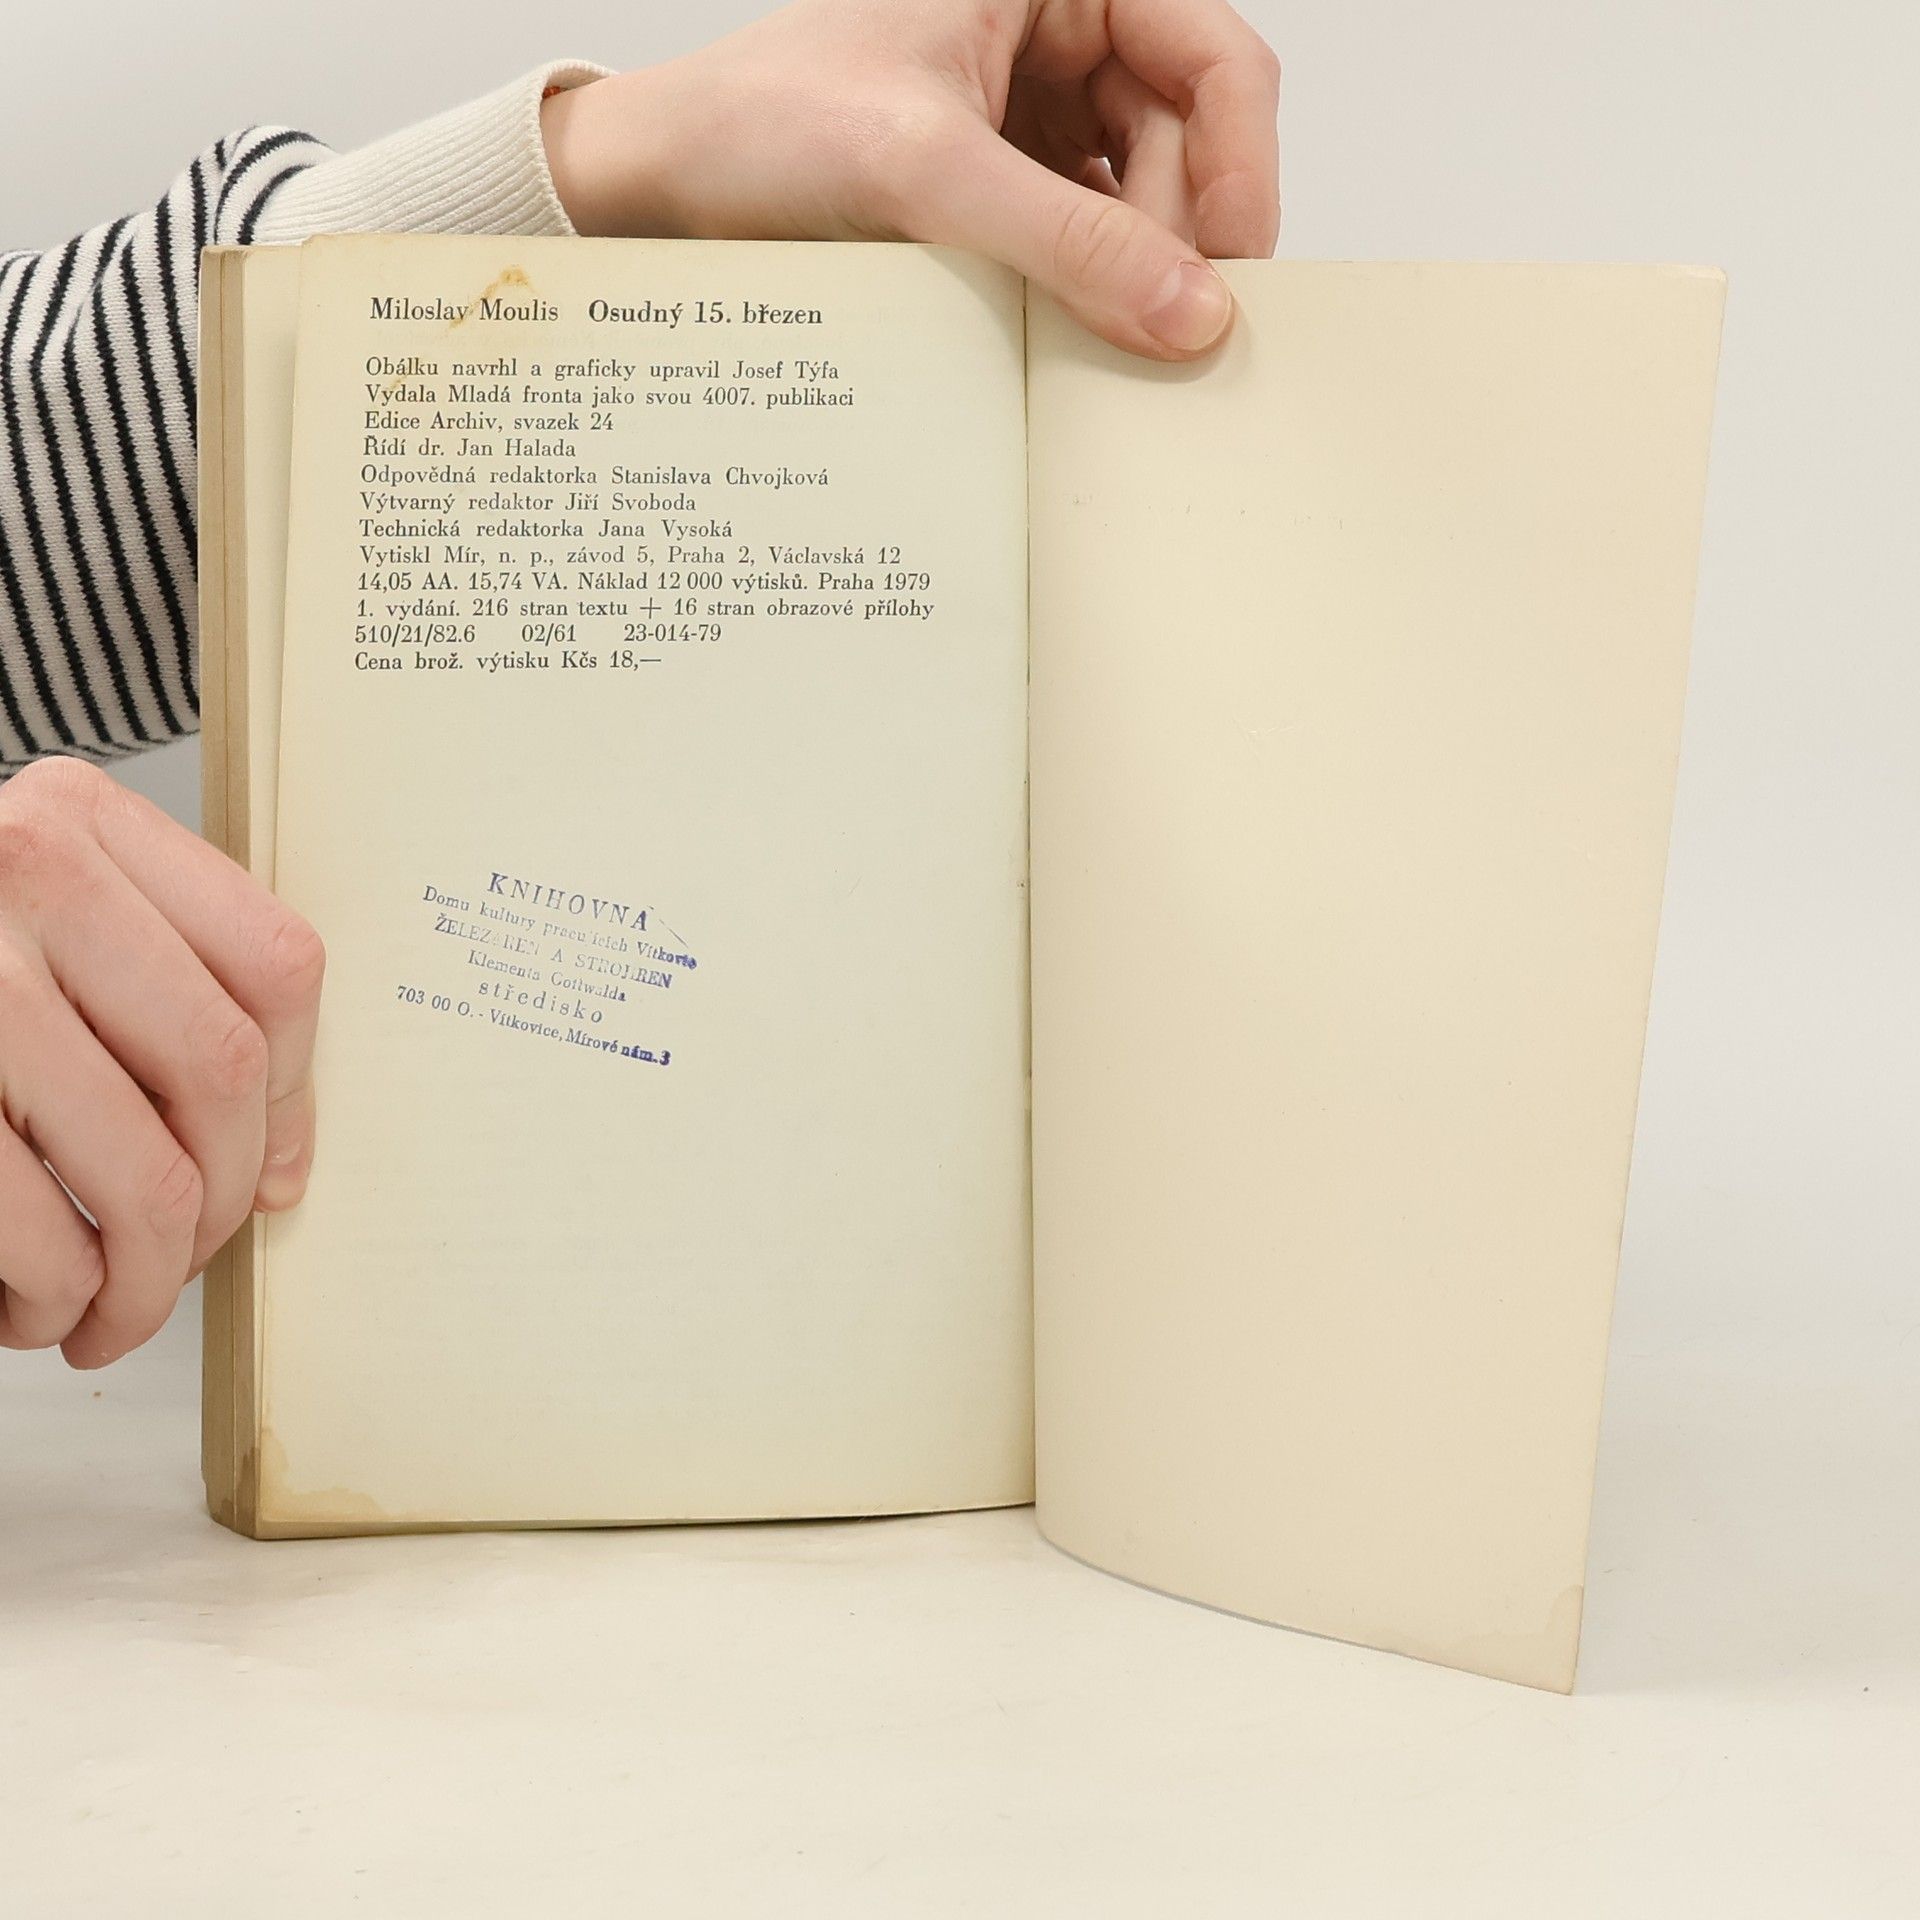 Miloslav Moulis Osudný 15. březen
Obálku navrhl a graficky upravil Josef Týfa
Vydala Mladá fronta jako svou 4007. publikaci
Edice Archiv, svazek 24
Řídí dr. Jan Halada
Odpovědná redaktorka Stanislava Chvojková
Výtvarný redaktor Jiří Svoboda
Technická redaktorka Jana Vysoká
Vytiskl Mír, n. p., závod 5, Praha 2, Václavská 12
14,05 AA. 15,74 VA. Náklad 12 000 výtisků. Praha 1979
1. vydání. 216 stran textu + 16 stran obrazové přílohy
510/21/82.6 02/61 23-014-79
Cena brož. výtisku Kčs 18,—
KNIHOVNA
Domu kultury pracujících Vítkovic
ŽELEZÁREN A STROJÍREN
Klementa Gottwalda
středisko
703 00 O.- Vítkovice, Mírové nám. 3